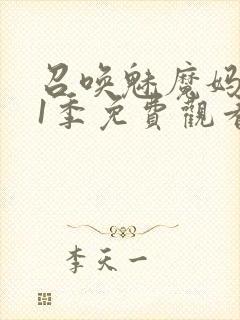 召唤魅魔妈
1季免費觀看
李天一